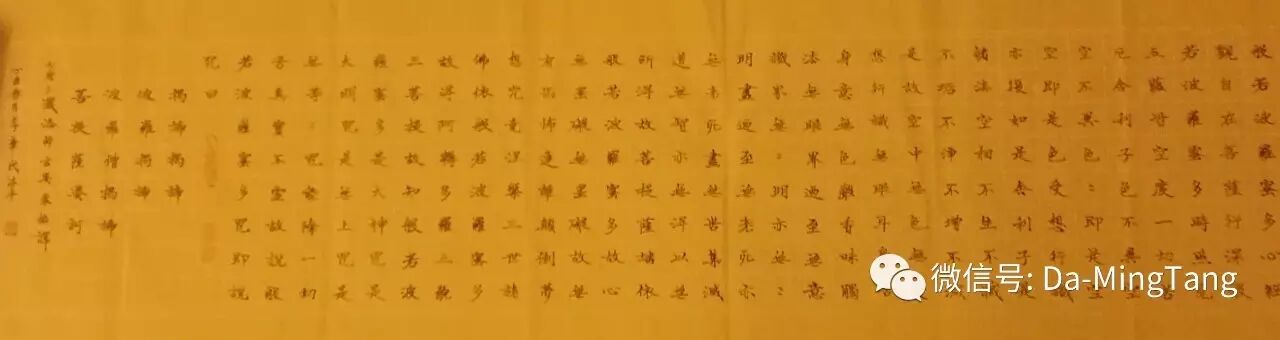 般若波羅蜜多心經
觀自在菩薩行深般
若波羅蜜多時照見
五蘊皆空度一切苦
厄舍利子色不異空
空不異色〻即是空
空即是色受想行識
亦復如是舍利子是
諸法空相不生不滅
不垢不淨不增不減
是故空中無色無受
想行識無眼耳鼻舌
身意無色聲香味觸
法無眼界迺至無意
識界無〻明亦無〻
明盡迺至無老死亦
無老死盡無苦集滅
道無智亦無得以無
所得故菩提薩埵依
般若波羅蜜多故心
無罣礙無罣礙故無
有恐怖遠離顛倒夢
想究竟涅槃三世諸
佛依般若波羅蜜多
故得阿耨多羅三藐
三菩提故知般若波
羅蜜多是大神咒是
大明咒是無上咒是
無等〻咒能除一切
苦真實不虛故說般
若波羅蜜多咒即說
咒曰
揭諦揭諦
波羅揭諦
波羅僧揭諦
菩提薩婆訶
三藏法師玄奘奉詔譯
微信号: Da-MingTang